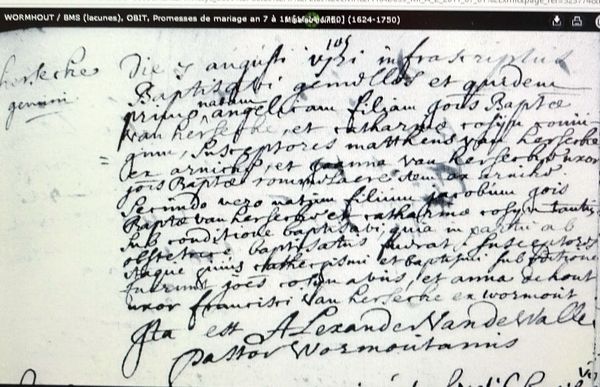 WORMHOUT / BMS (lacunes), OBIT, Promesses de mariage an 7 à 1750] (1624-1750)
herseche die 7 augusti infrascriptus
gemini Baptisavi gemellos et quidem
natam
primo angelicam filiam jois Baptæ
van herseche, et catharinæ cosijn conju-
ginu, susceptores mattheus van herseche
ex arnicke, et joanna van herseche uxor
jois Baptæ rommelaere dem ex arnicke
secundo vero natum filium jacobum jois
Baptæ van herseche et catharinæ cosijn tantum
sub conditione baptisavi quia in partu ab
obstetrice baptisatus fuerat susceptores
itaque huius cathecismi et baptismi sub conditione
fuerunt joes cosijn avus, et anna dehout
uxor francisci van herseche ex wormout
Ita est Alexander Van de Walle
pastor Wormoutanus